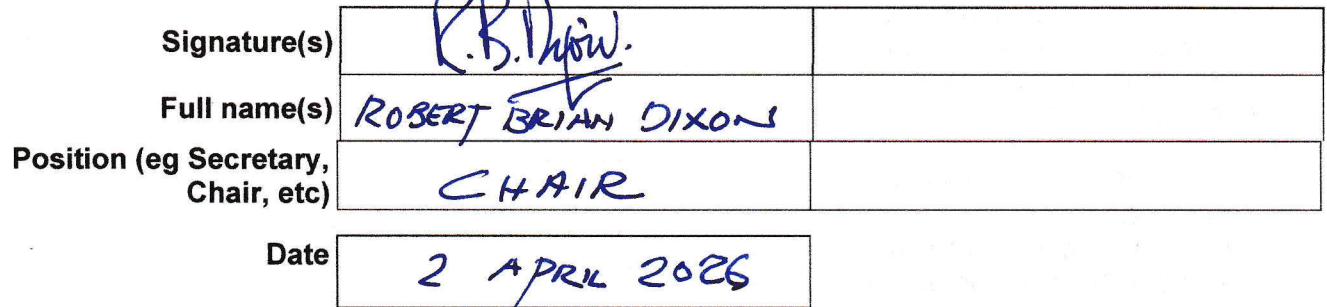 Signature(s) R.B. Dixon.
Full name(s) ROBERT BRIAN DIXON
Position (eg Secretary,
Chair, etc) CHAIR
Date 2 APRIL 2026